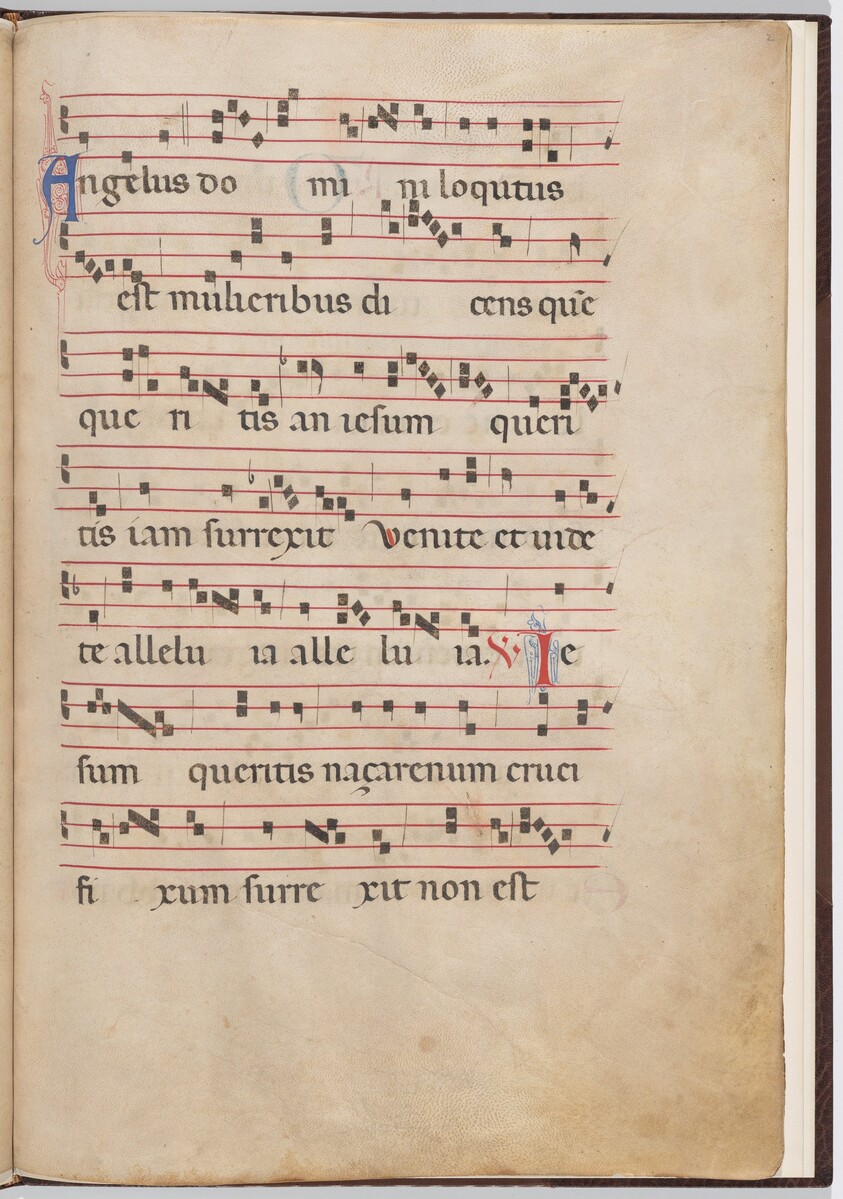 Angelus do mi ni loqutus
est mulieribus di cens quē
que ri tis an iesum queri
tis iam surrexit venite et uide
te allelu ia alle lu ia. V. Ie
sum queritis naçarenum cruci
fi xum surre xit non est